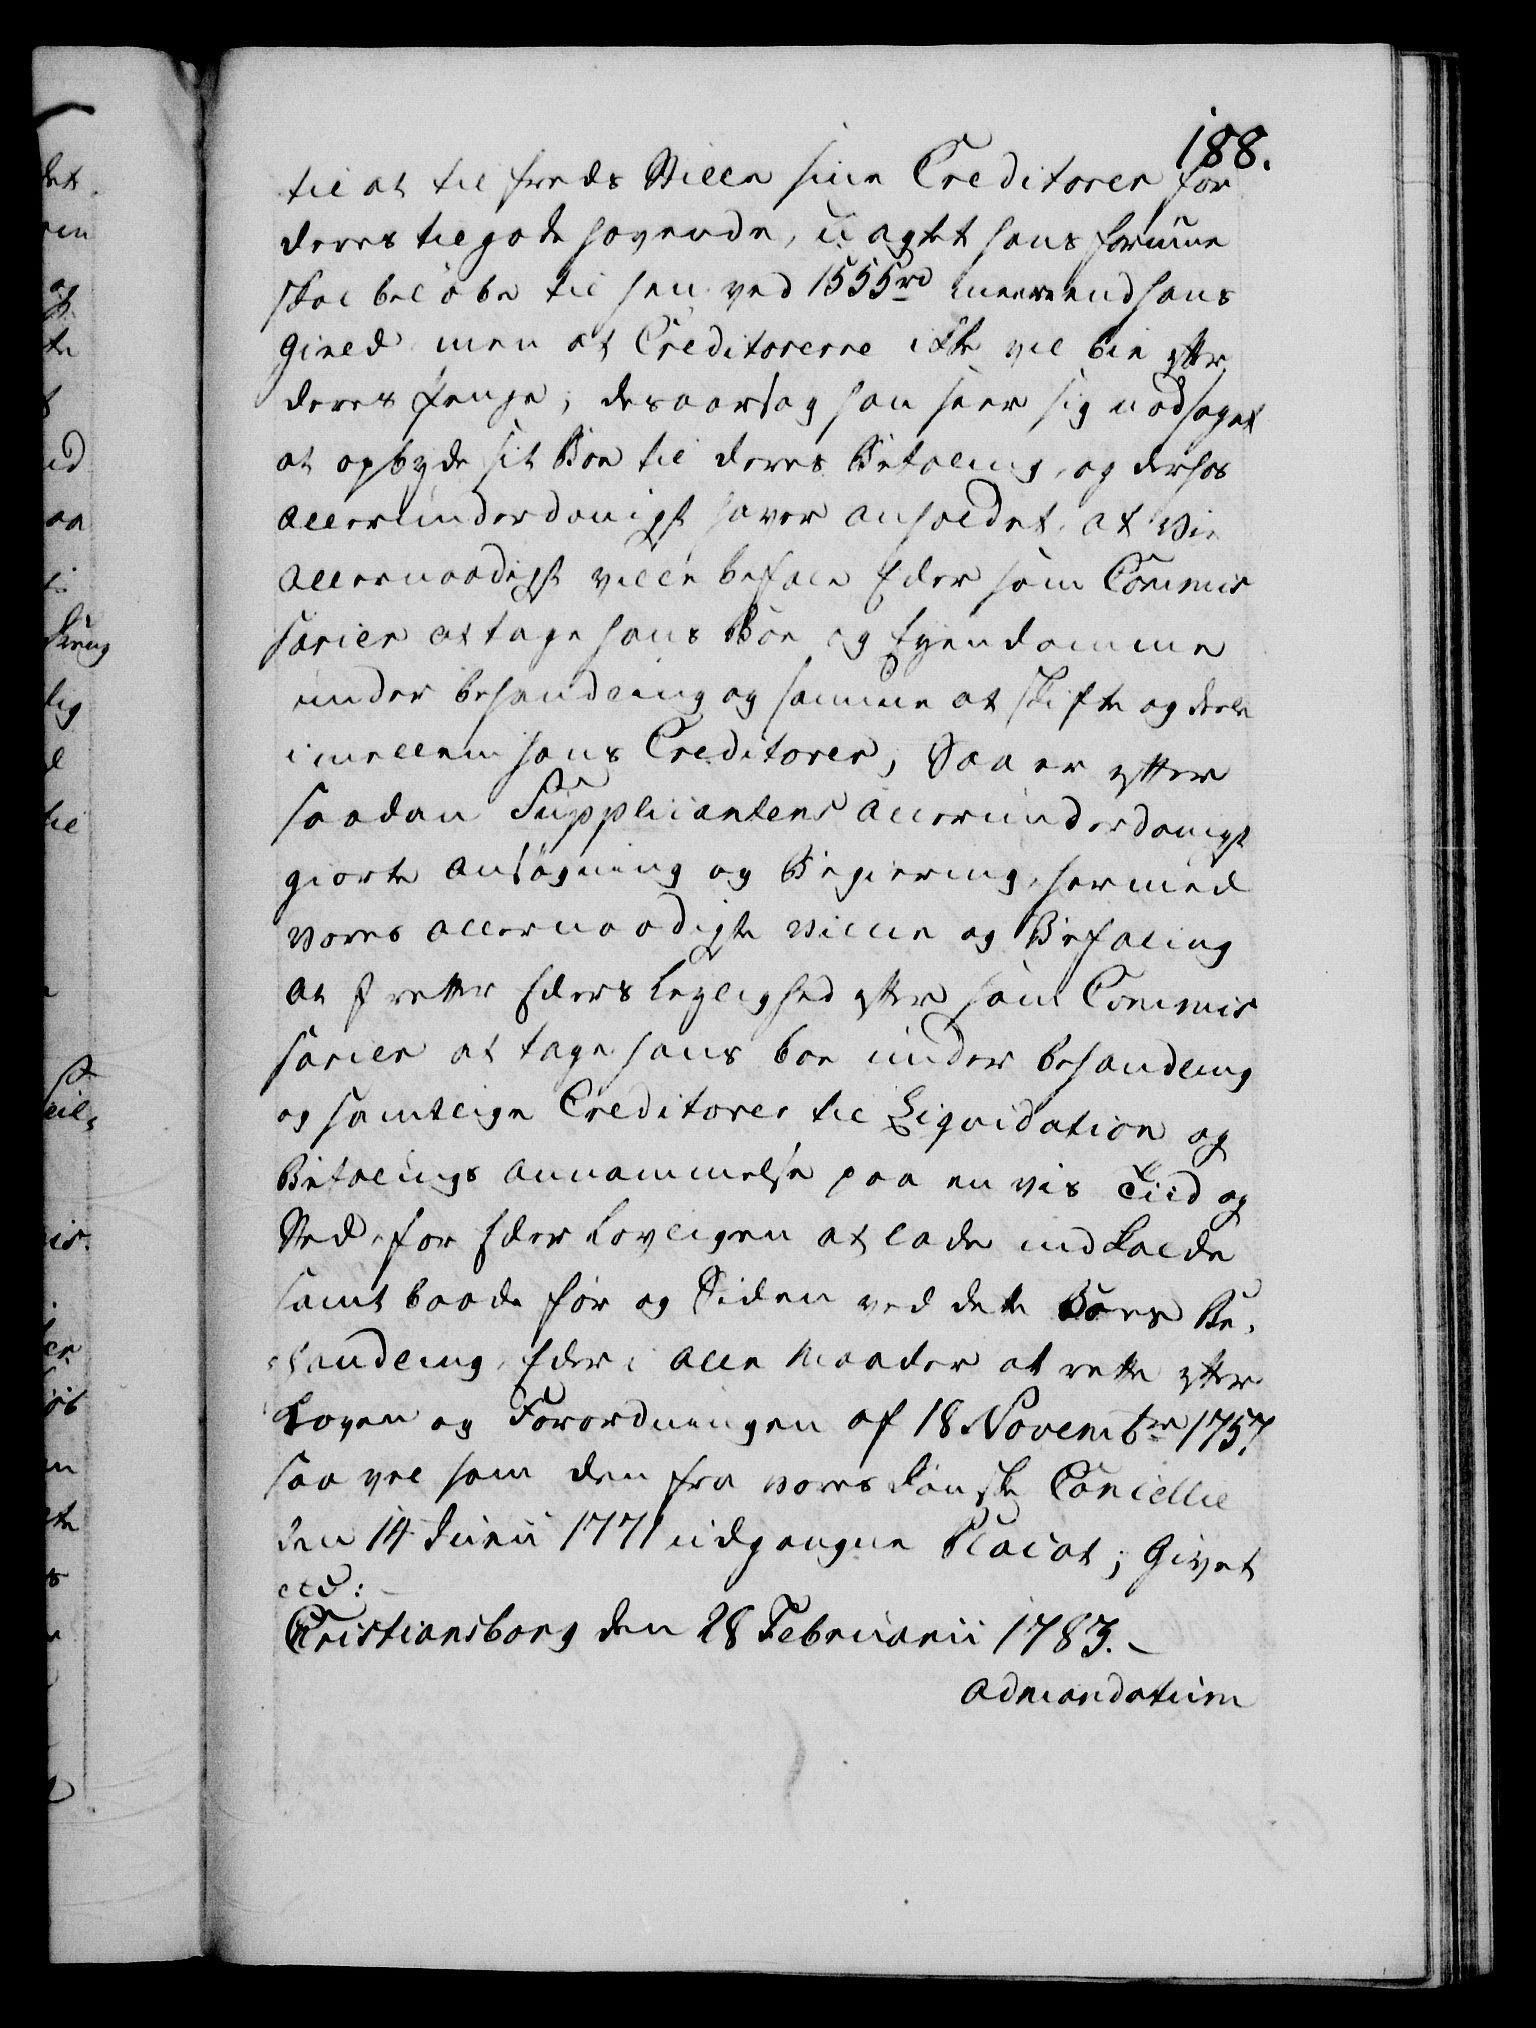 188.
til at tilfreds stille sine Creditorer for
deres tilgode havende, uagtet hans formue
skal beløbe til hen ved 1555 rd meere end hans
Gield men at Creditorerne ikke vil bie efter
deres Penge; desaarsag han seer sig nødsaget
at opbyde sit Boe til deres Betaling, og derhos
allerunderdanigst haver anholdet, at Vi
allernaadigst ville befale Eder som Commis
sarier at tage hans Boe og Eyendomme
under behandling og samme at skifte og deele
imellem hans Creditorer; Saa er efter
saadan Supplicantens allerunderdanigst
giorte ansøgning og Begiering, hermed
vores allernaadigste Villie og Befaling
at I retter Eders Leylighed efter som Commis
sarier at tage hans boe under behandling
og samtlige Creditorer til Liqvidation og
Betalings annammelse paa en vis Tiid og
Sted, for Eder Lovligen at lade indkalde
samt baade før og Siden ved dette Boes Be,
handling, Eder i alle Maader at rette efter
Loven og Forordningen af 18 Novembr 1757
saa vel som den fra vores danske Cancellie
den 14 Junii 1771 udgangne Placat; Givet
etc:
Cristiansborg den 28 Februarii 1783.
admandatum